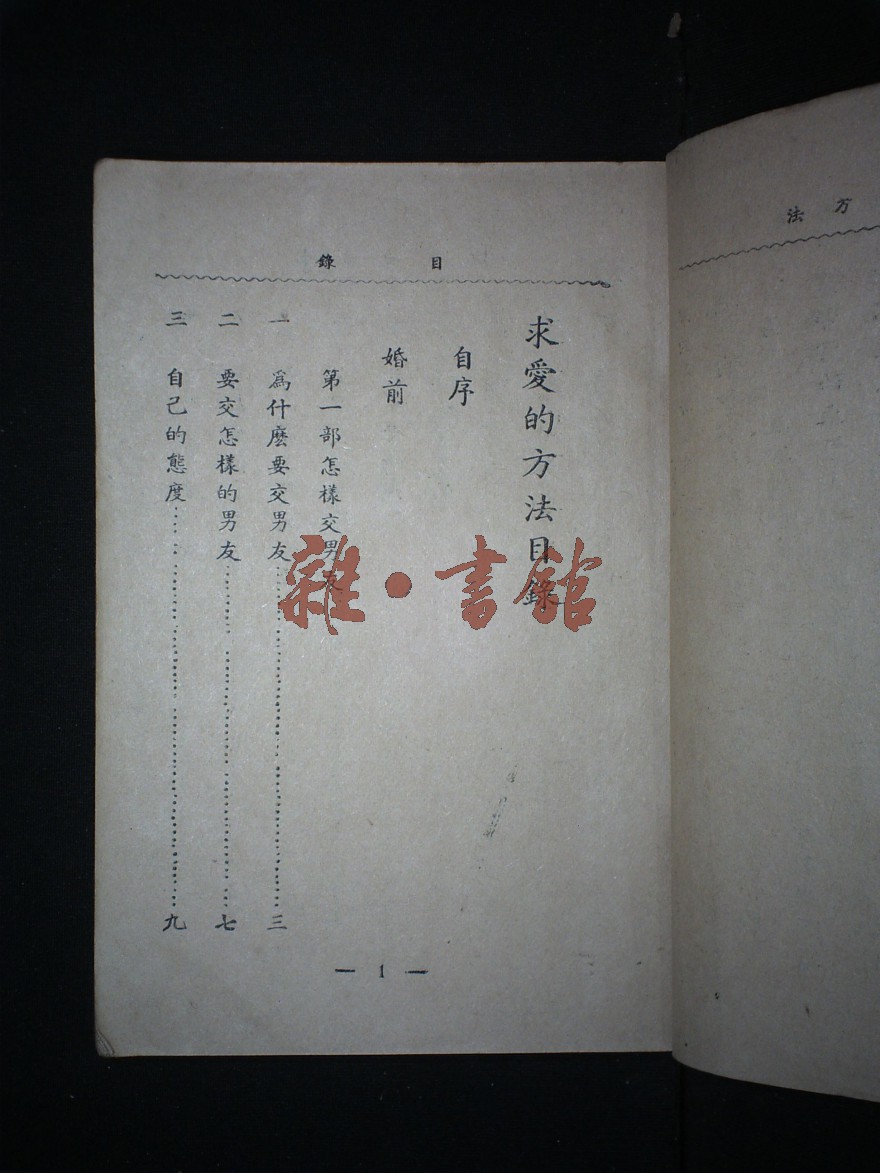 目錄
求愛的方法目錄
自序
婚前
第一部怎樣交男友
一 為什麼要交男友…………三
二 要交怎樣的男友…………七
三 自己的態度…………九
— 1 —
方法
雜·書館